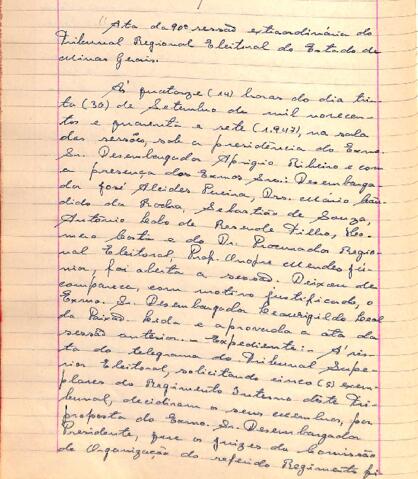 "Ata da 90ª sessão extraordinária do
Tribunal Regional Eleitoral do Estado de
Minas Gerais.
Às quatorze (14) horas do dia trin-
ta (30) de Setembro de mil novecen-
tos e quarenta e sete (1.947), na sala
das sessões, sob a presidência do Exmo.
Sr. Desembargador Aprigio Ribeiro e com
a presença dos Exmos Srs: Desembarga-
dor José Alcides Pereira, Drs. Mário Cân-
dido da Rocha, Sebastião de Souza,
Antônio Lobo de Resende Filho,
Costa e do Dr. Procurador Regio-
nal Eleitoral, Prof. Onofre Mendes Jú-
nior, foi aberta a sessão. Deixou de
comparecer, com motivo justificado, o
Exmo. Sr. Desembargador Leovigildo Leal
da Paixão. Lida e aprovada a ata da
sessão anterior. - Expediente: - À vis-
ta do telegrama do Tribunal Supe-
rior Eleitoral, solicitando cinco (5) exem-
plares do Regimento Interno deste Tri-
bunal, decidiram os seus membros, por
proposta do Exmo. Sr. Desembargador
Presidente, que os juizes da Comissão
de Organização do referido Regimento fi-